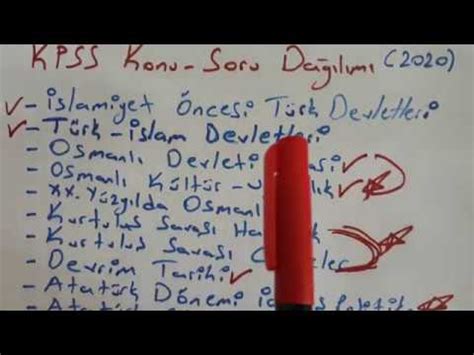 KPSS Konu-Soru Dağılımı (2020)
- İslamiyet Öncesi Türk Devletleri
- Türk-İslam Devletleri
- Osmanlı Devleti
- Osmanlı Kültür-
- XX. Yüzyılda Osmanlı
- Kurtuluş Savaşı
- Kurtuluş Savaşı
- Devrim Tarihi
- Atatürk Dönemi
Atatürk